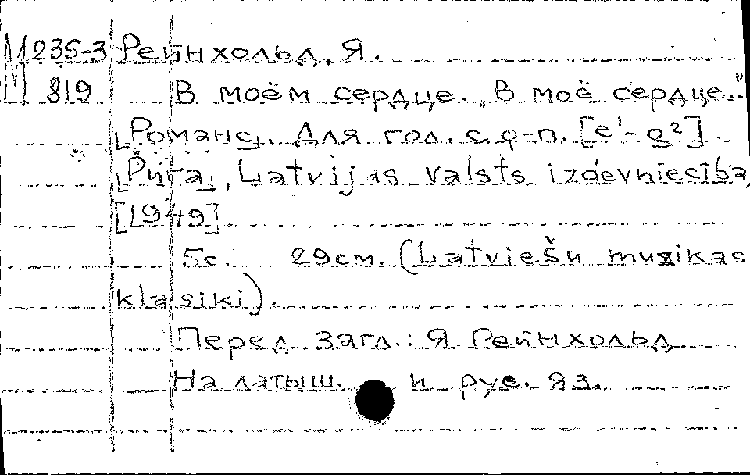 М 235-3 Рейнхольд, Я.
819 В моём сердце. „В моё сердце..."
[Романс]. Для гол. с ф-п. [e¹-g²]
[Рига], Latvijas valsts izdevniecība,
[1949]
5с. 29см. (Latviešu muzikas
klasiki).
Перед загл.: Я Рейнхольд
На латыш. и рус. яз.